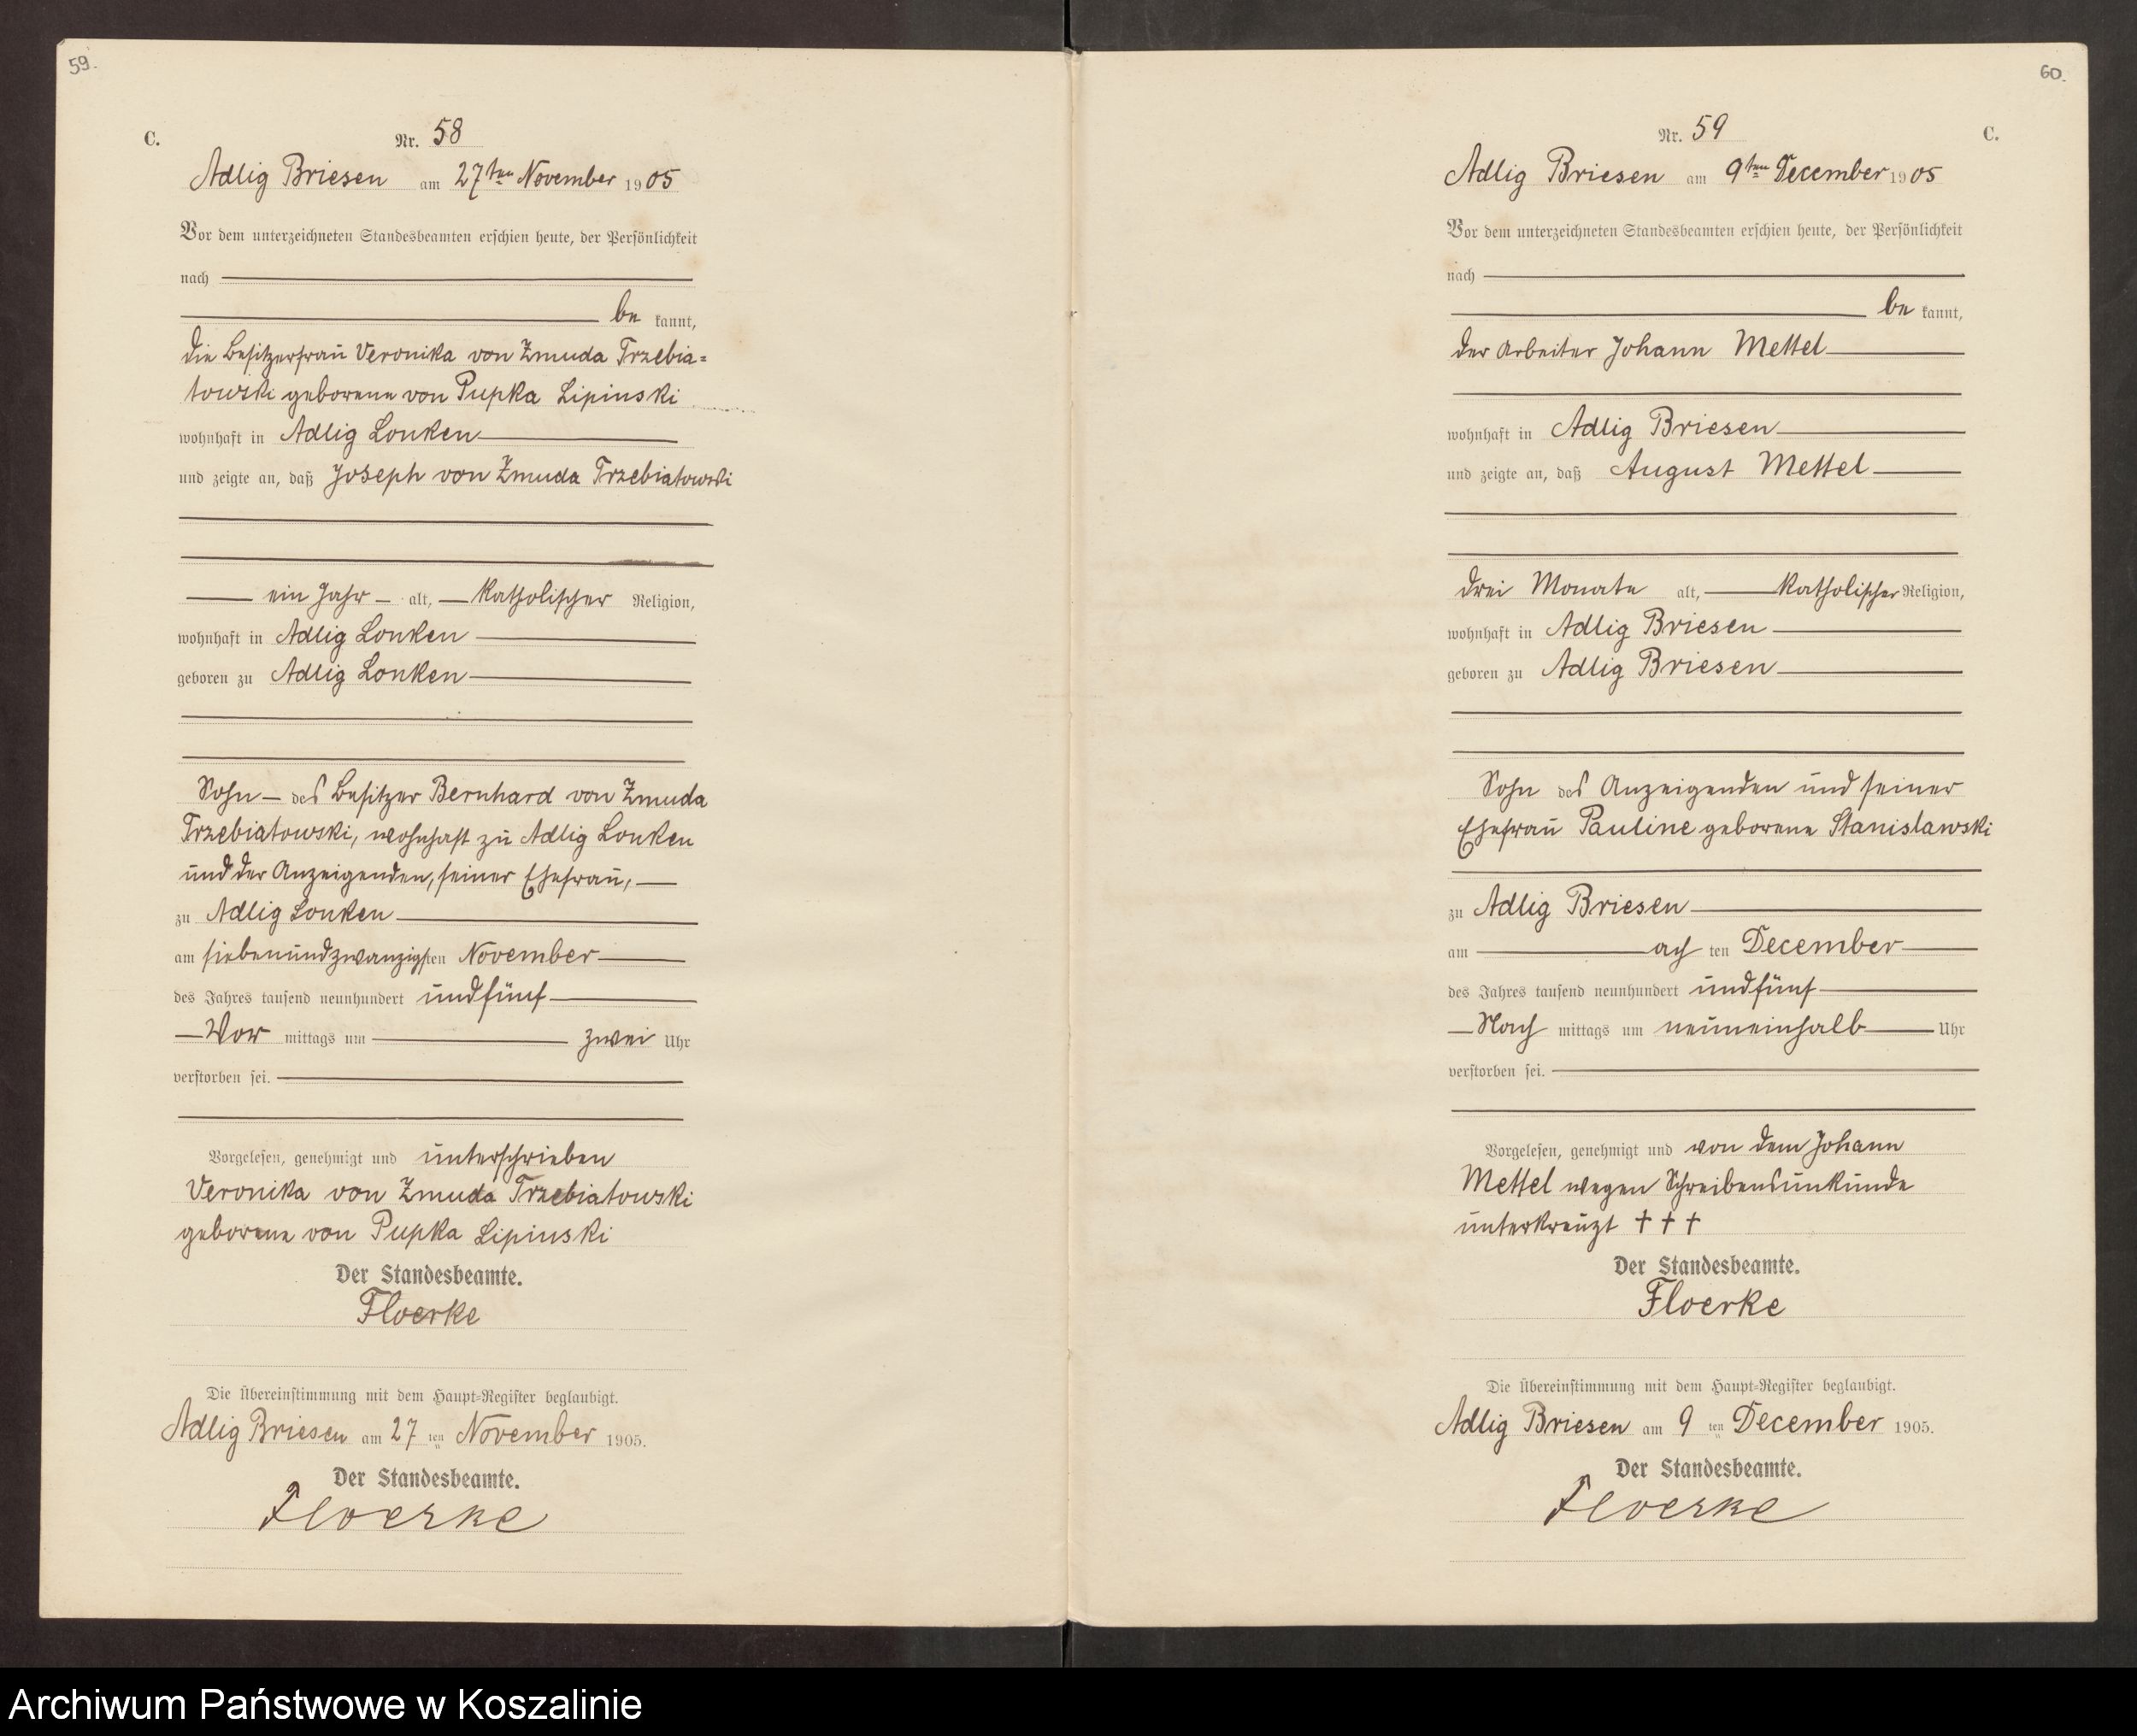 59.
C.
Nr. 58
Adlig Briesen am 27ten November 1905
Vor dem unterzeichneten Standesbeamten erschien heute, der Persönlichkeit
nach
be kannt,
die Besitzerfrau Veronika von Zmuda Trzebia=
towski geborene von Pupka Lipinski
wohnhaft in Adlig Lonken
und zeigte an, daß Joseph von Zmuda Trzebiatowski
ein Jahr alt, Katholischer Religion,
wohnhaft in Adlig Lonken
geboren zu Adlig Lonken
Sohn des Besitzer Bernhard von Zmuda
Trzebiatowski, wohnhaft zu Adlig Lonken
und der Anzeigenden, seiner Ehefrau,
zu Adlig Lonken
am siebenundzwanzigsten November
des Jahres tausend neunhundert undfünf
Vor mittags um zwei Uhr
verstorben sei.
Vorgelesen, genehmigt und unterschrieben
Veronika von Zmuda Trzebiatowski
geborene von Pupka Lipinski
Der Standesbeamte.
Floerke
Die Übereinstimmung mit dem Haupt=Register beglaubigt.
Adlig Briesen am 27 ten November 1905.
Der Standesbeamte.
Floerke
60.
Nr. 59
C.
Adlig Briesen am 9ten December 1905
Vor dem unterzeichneten Standesbeamten erschien heute, der Persönlichkeit
nach
be kannt,
der Arbeiter Johann Mettel
wohnhaft in Adlig Briesen
und zeigte an, daß August Mettel
drei Monate alt, Katholischer Religion,
wohnhaft in Adlig Briesen
geboren zu Adlig Briesen
Sohn des Anzeigenden und seiner
Ehefrau Pauline geborene Stanislawski
zu Adlig Briesen
am ach ten December
des Jahres tausend neunhundert undfünf
Nach mittags um neuneinhalb Uhr
verstorben sei.
Vorgelesen, genehmigt und von dem Johann
Mettel wegen Schreibensunkunde
unterkreuzt † † †
Der Standesbeamte.
Floerke
Die Übereinstimmung mit dem Haupt=Register beglaubigt.
Adlig Briesen am 9 ten December 1905.
Der Standesbeamte.
Floerke
Archiwum Państwowe w Koszalinie